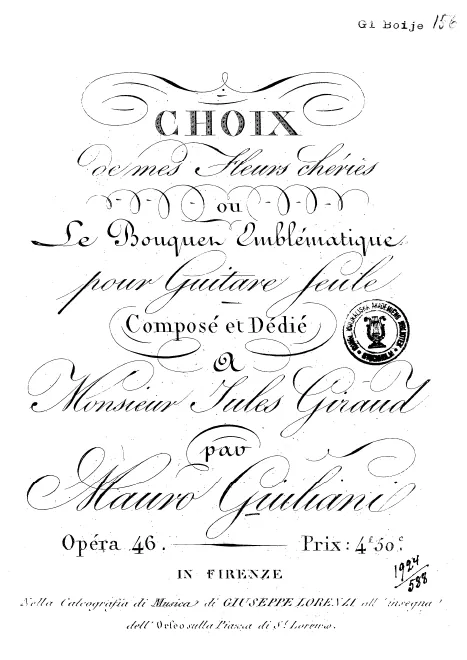 Gl Boije 156
CHOIX
de mes Fleurs chéries
ou
Le Bouquet Emblématique
pour Guitare seule
Composé et Dédié
A
Monsieur Jules Giraud
par
Mauro Giuliani
Opéra 46. Prix: 4.f 50.c
IN FIRENZE
Nella Calcografia di Musica di GIUSEPPE LORENZI all'insegna
dell'Orfeo sulla Piazza di S.t Lorenzo.
1924/588